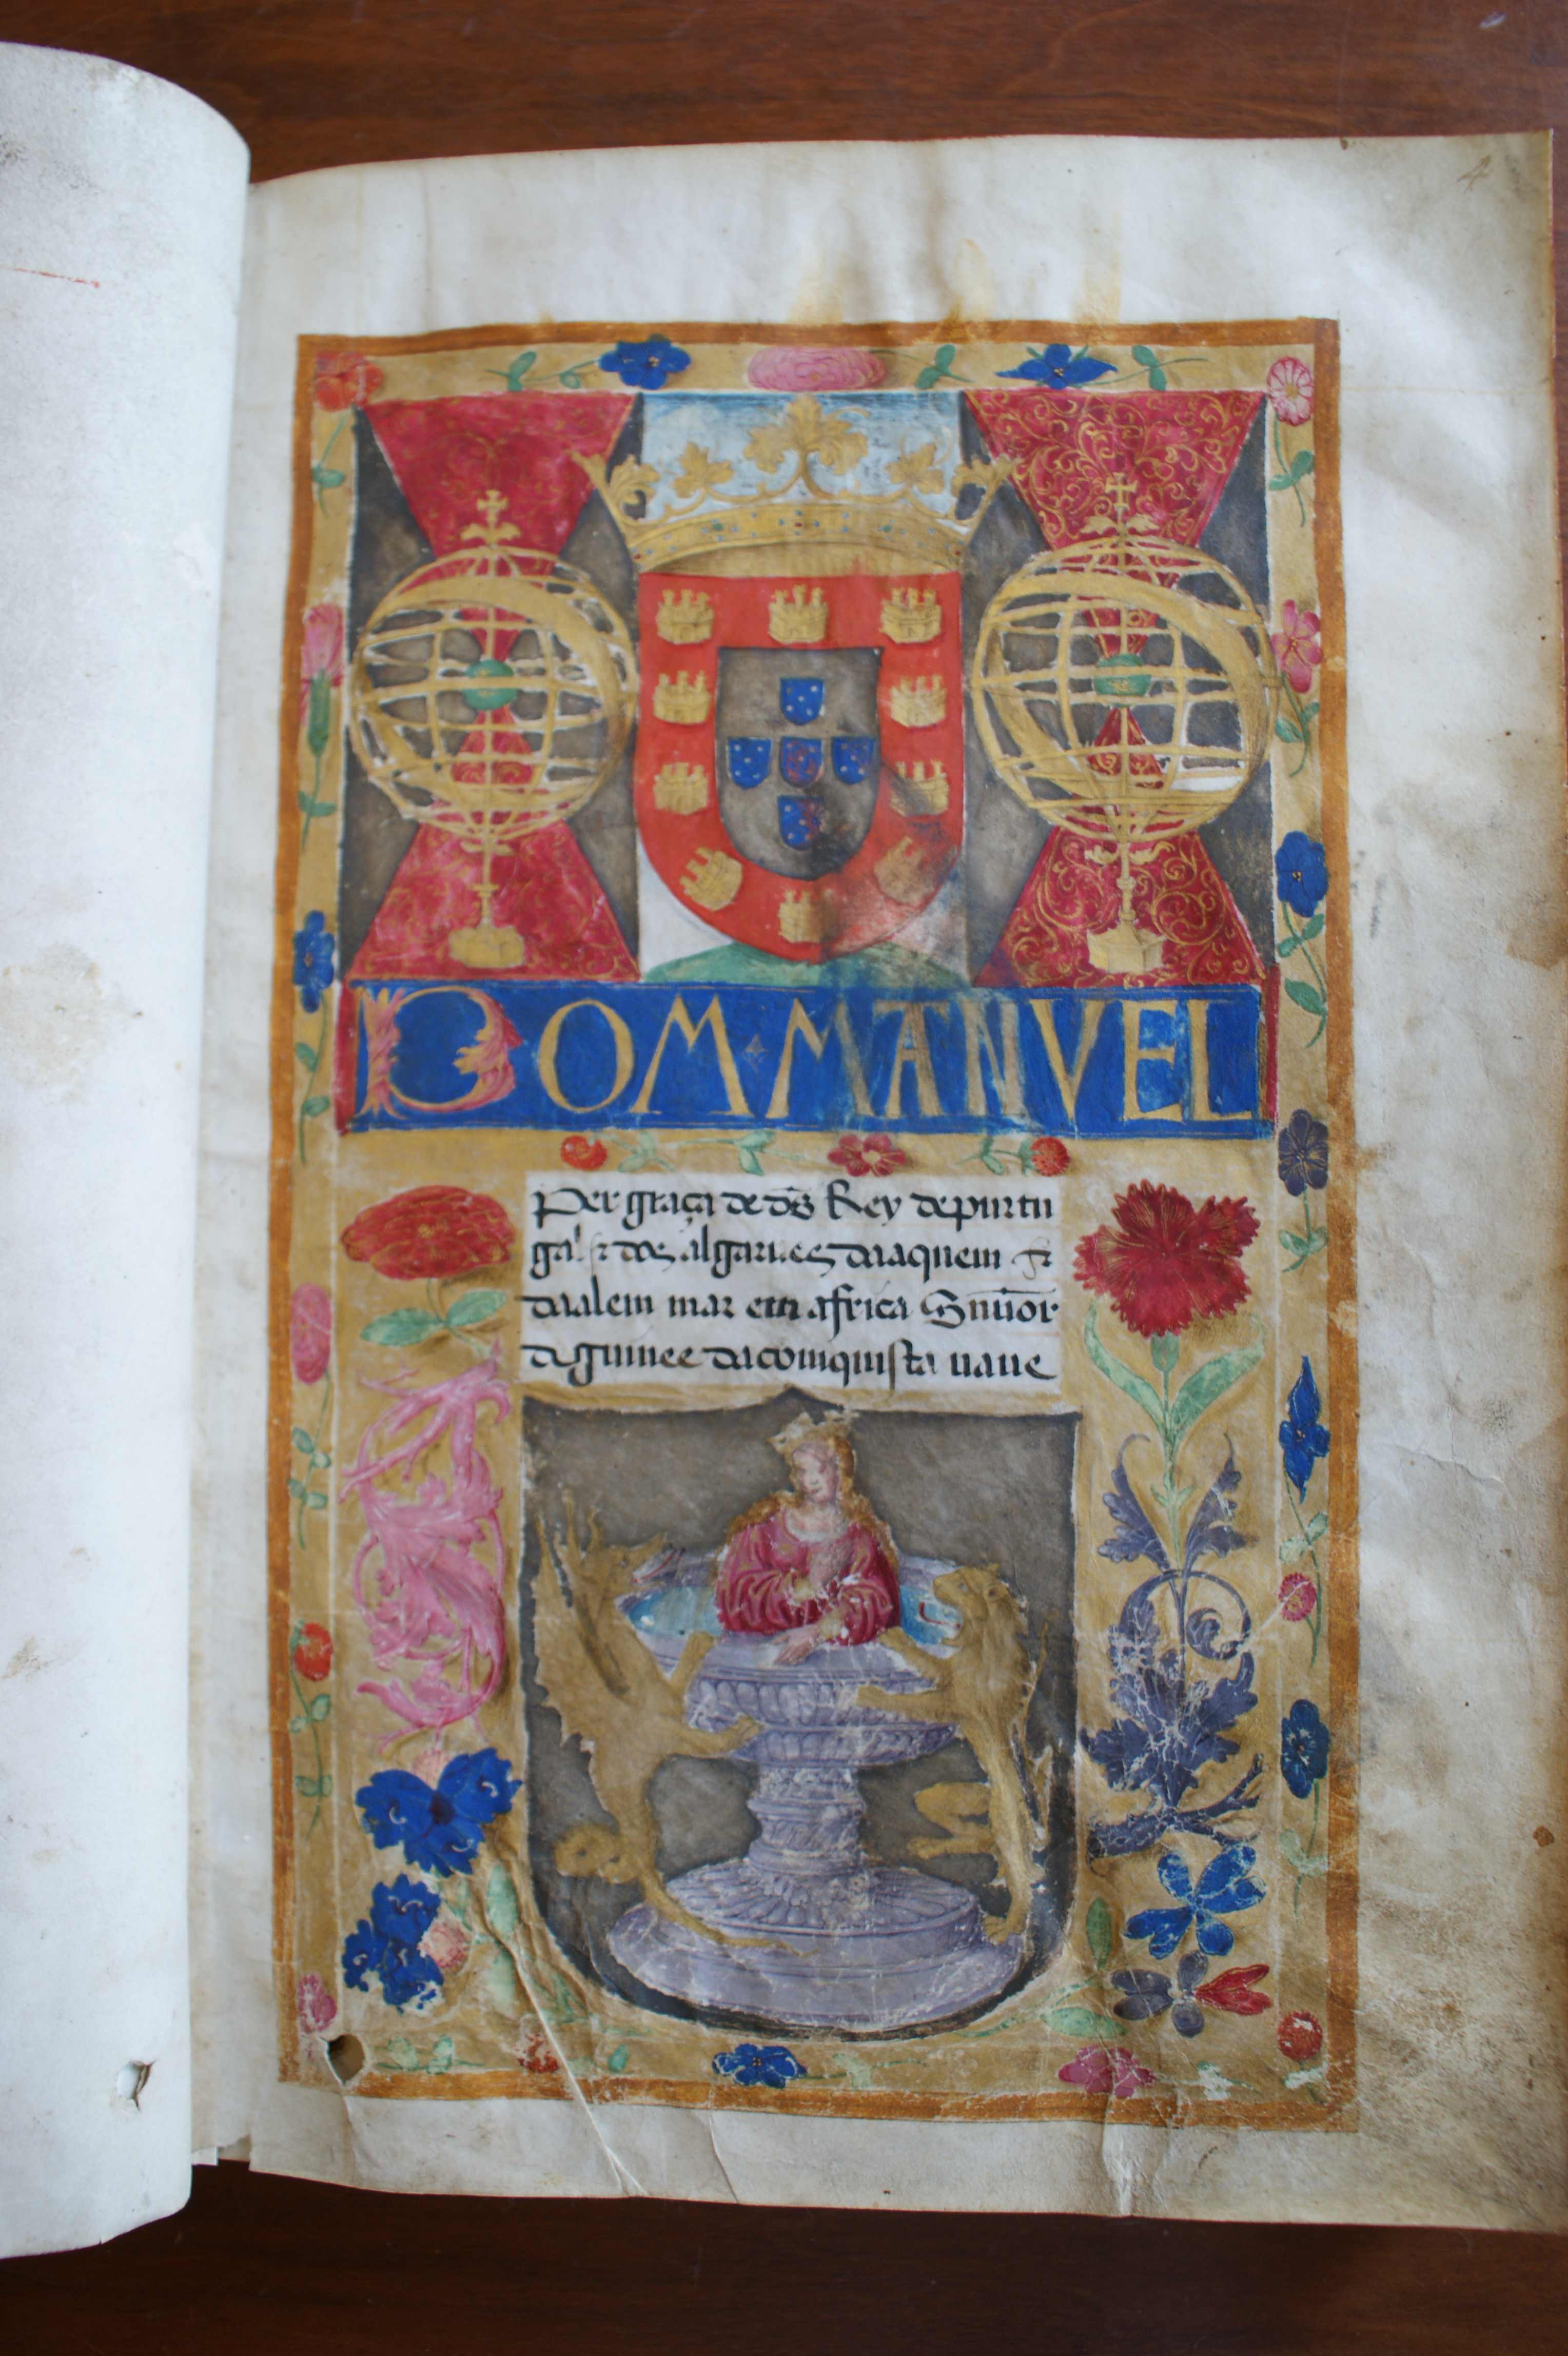 4
DOM MANVEL
Per graça de ds̃ Rey depurtu
gal ⁊ dos algarues daaquem ⁊
daalem mar em africa Snũor
de guinee da comquista naue